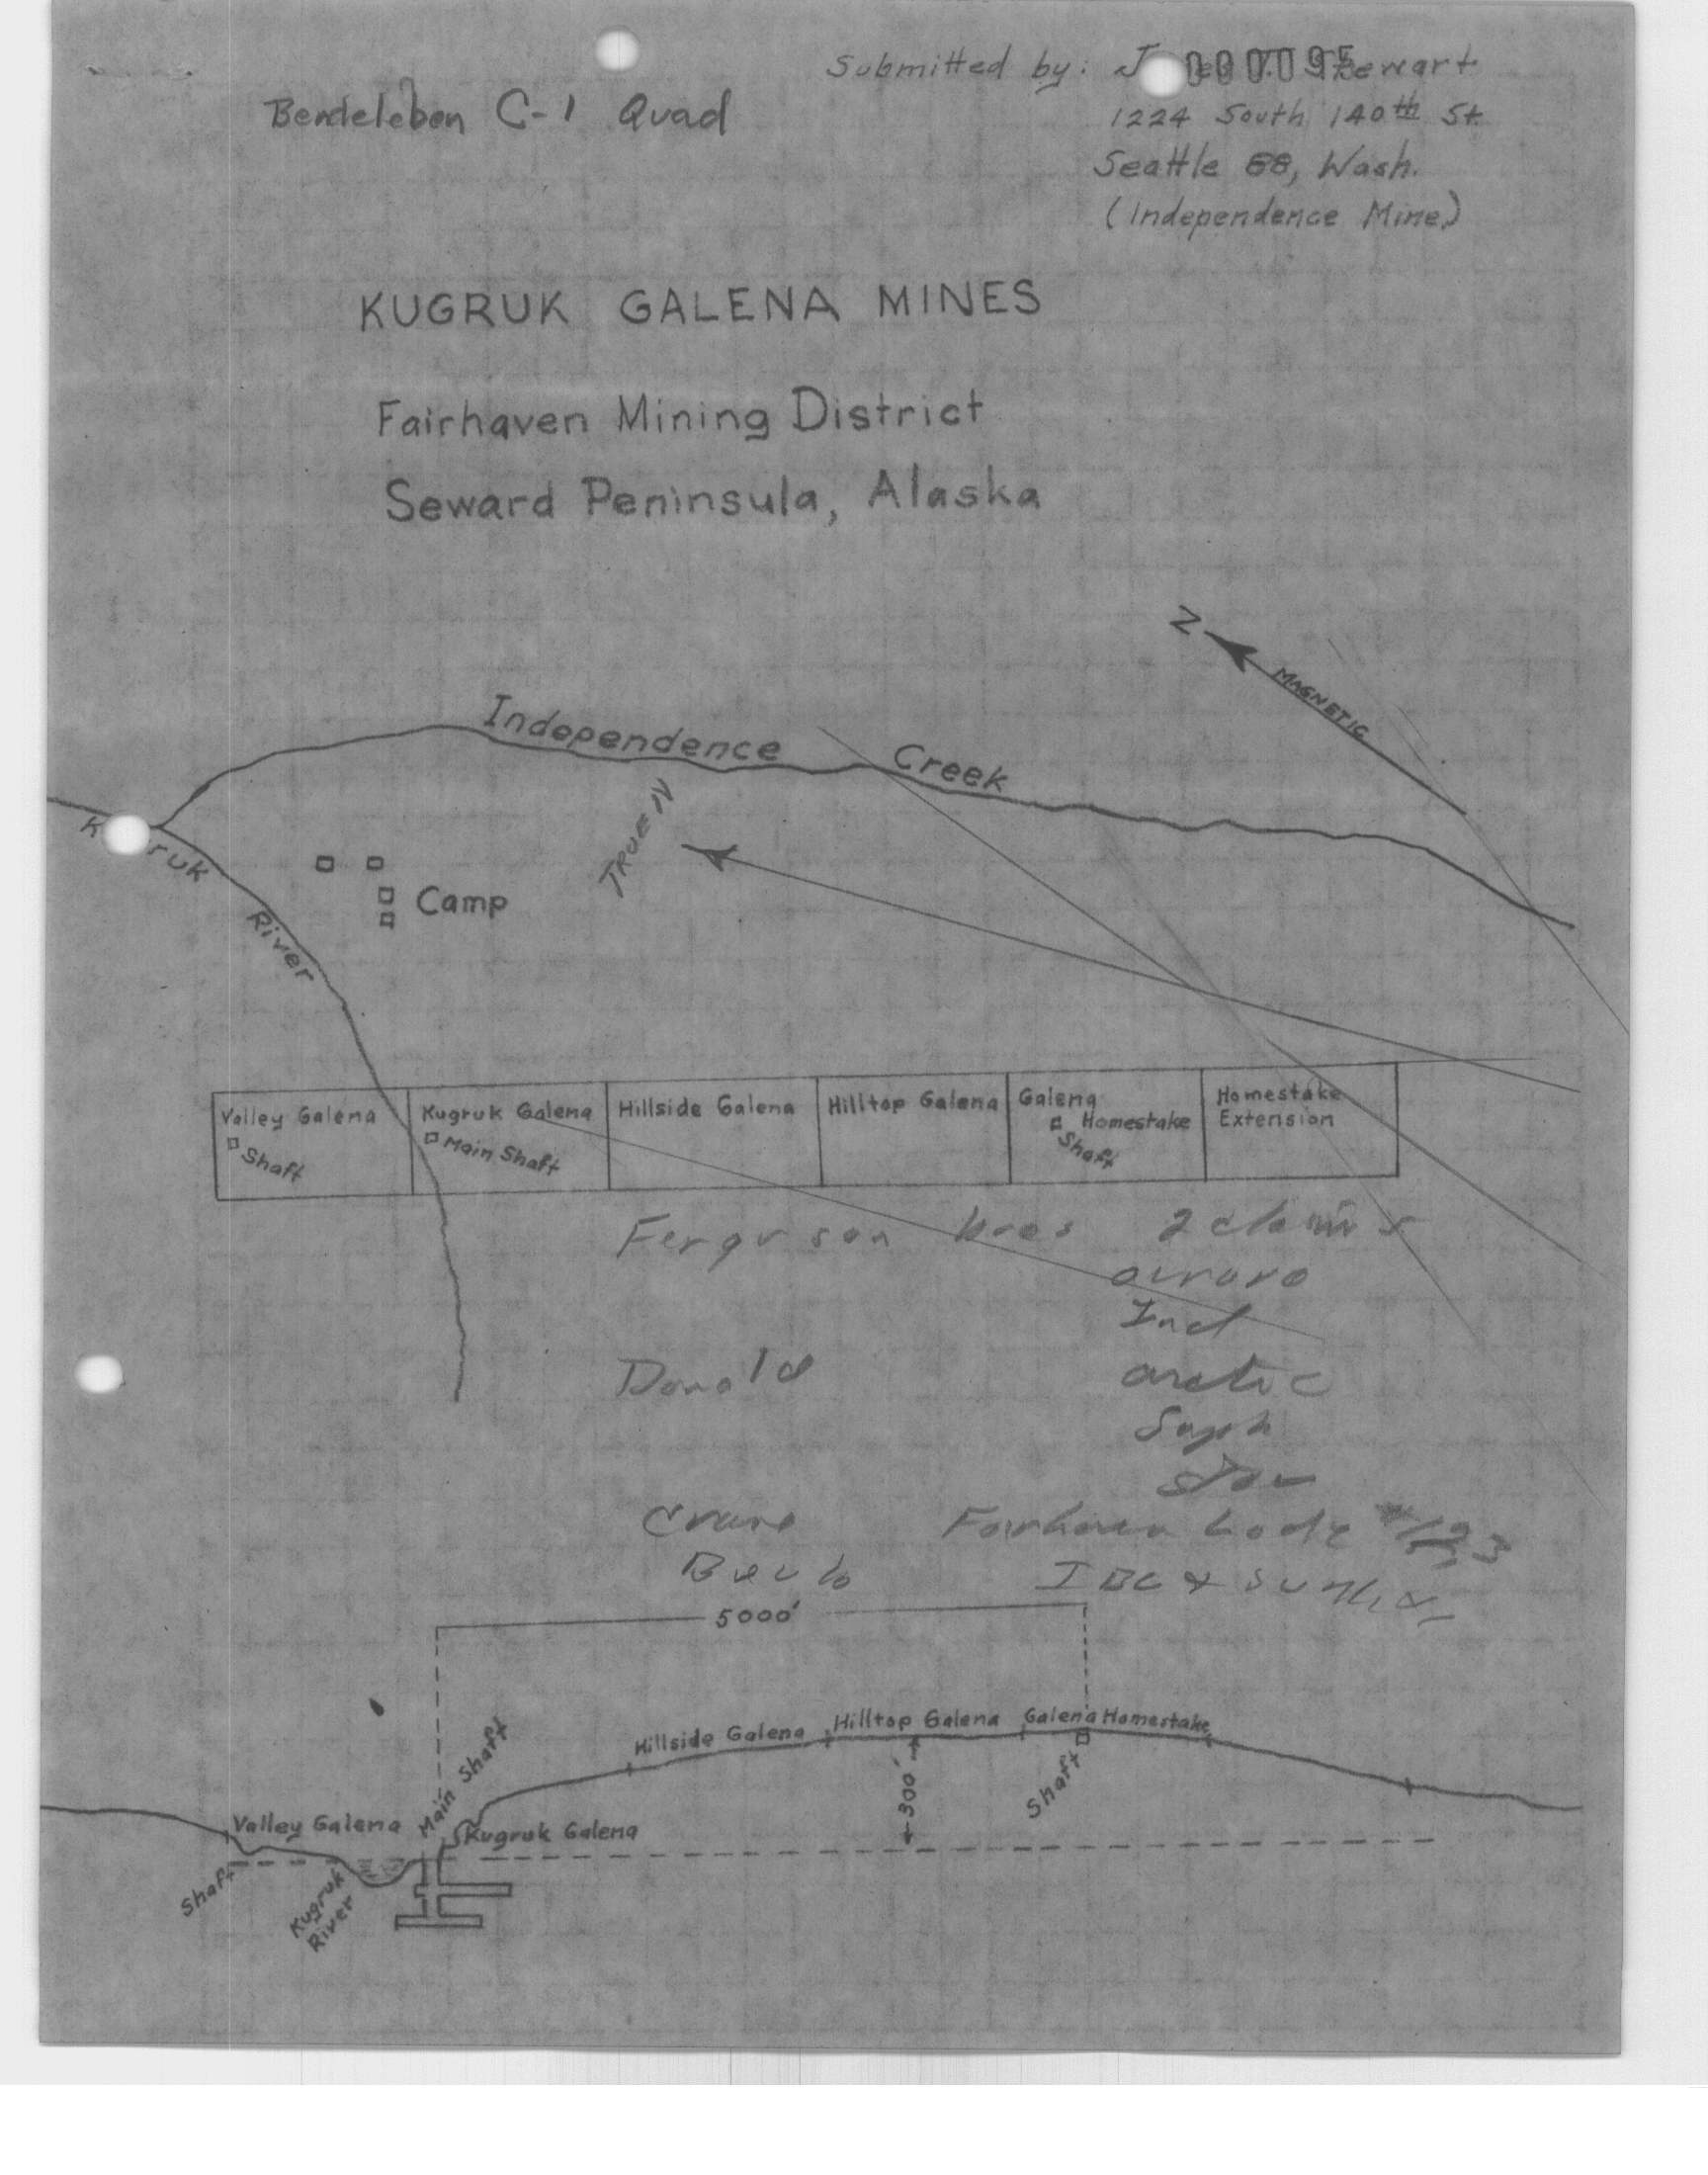 Submitted by: J Stewart
000095
Bendeleben C-1 Quad
1224 South 140th St.
Seattle 68, Wash.
(Independence Mine)
KUGRUK GALENA MINES
Fairhaven Mining District
Seward Peninsula, Alaska
N
MAGNETIC
Independence Creek
TRUE N
K ruk River
Camp
Valley Galena
Shaft
Kugruk Galena
Main Shaft
Hillside Galena
Hilltop Galena
Galena Homestake
Shaft
Homestake Extension
Ferguson bros 2 claims
Ind
Donald
arctic
Fairhaven Lode #1,2,3
5000'
Hillside Galena
Hilltop Galena
Galena Homestake
Main Shaft
Shaft
300'
Valley Galena
Kugruk Galena
Shaft
Kugruk River